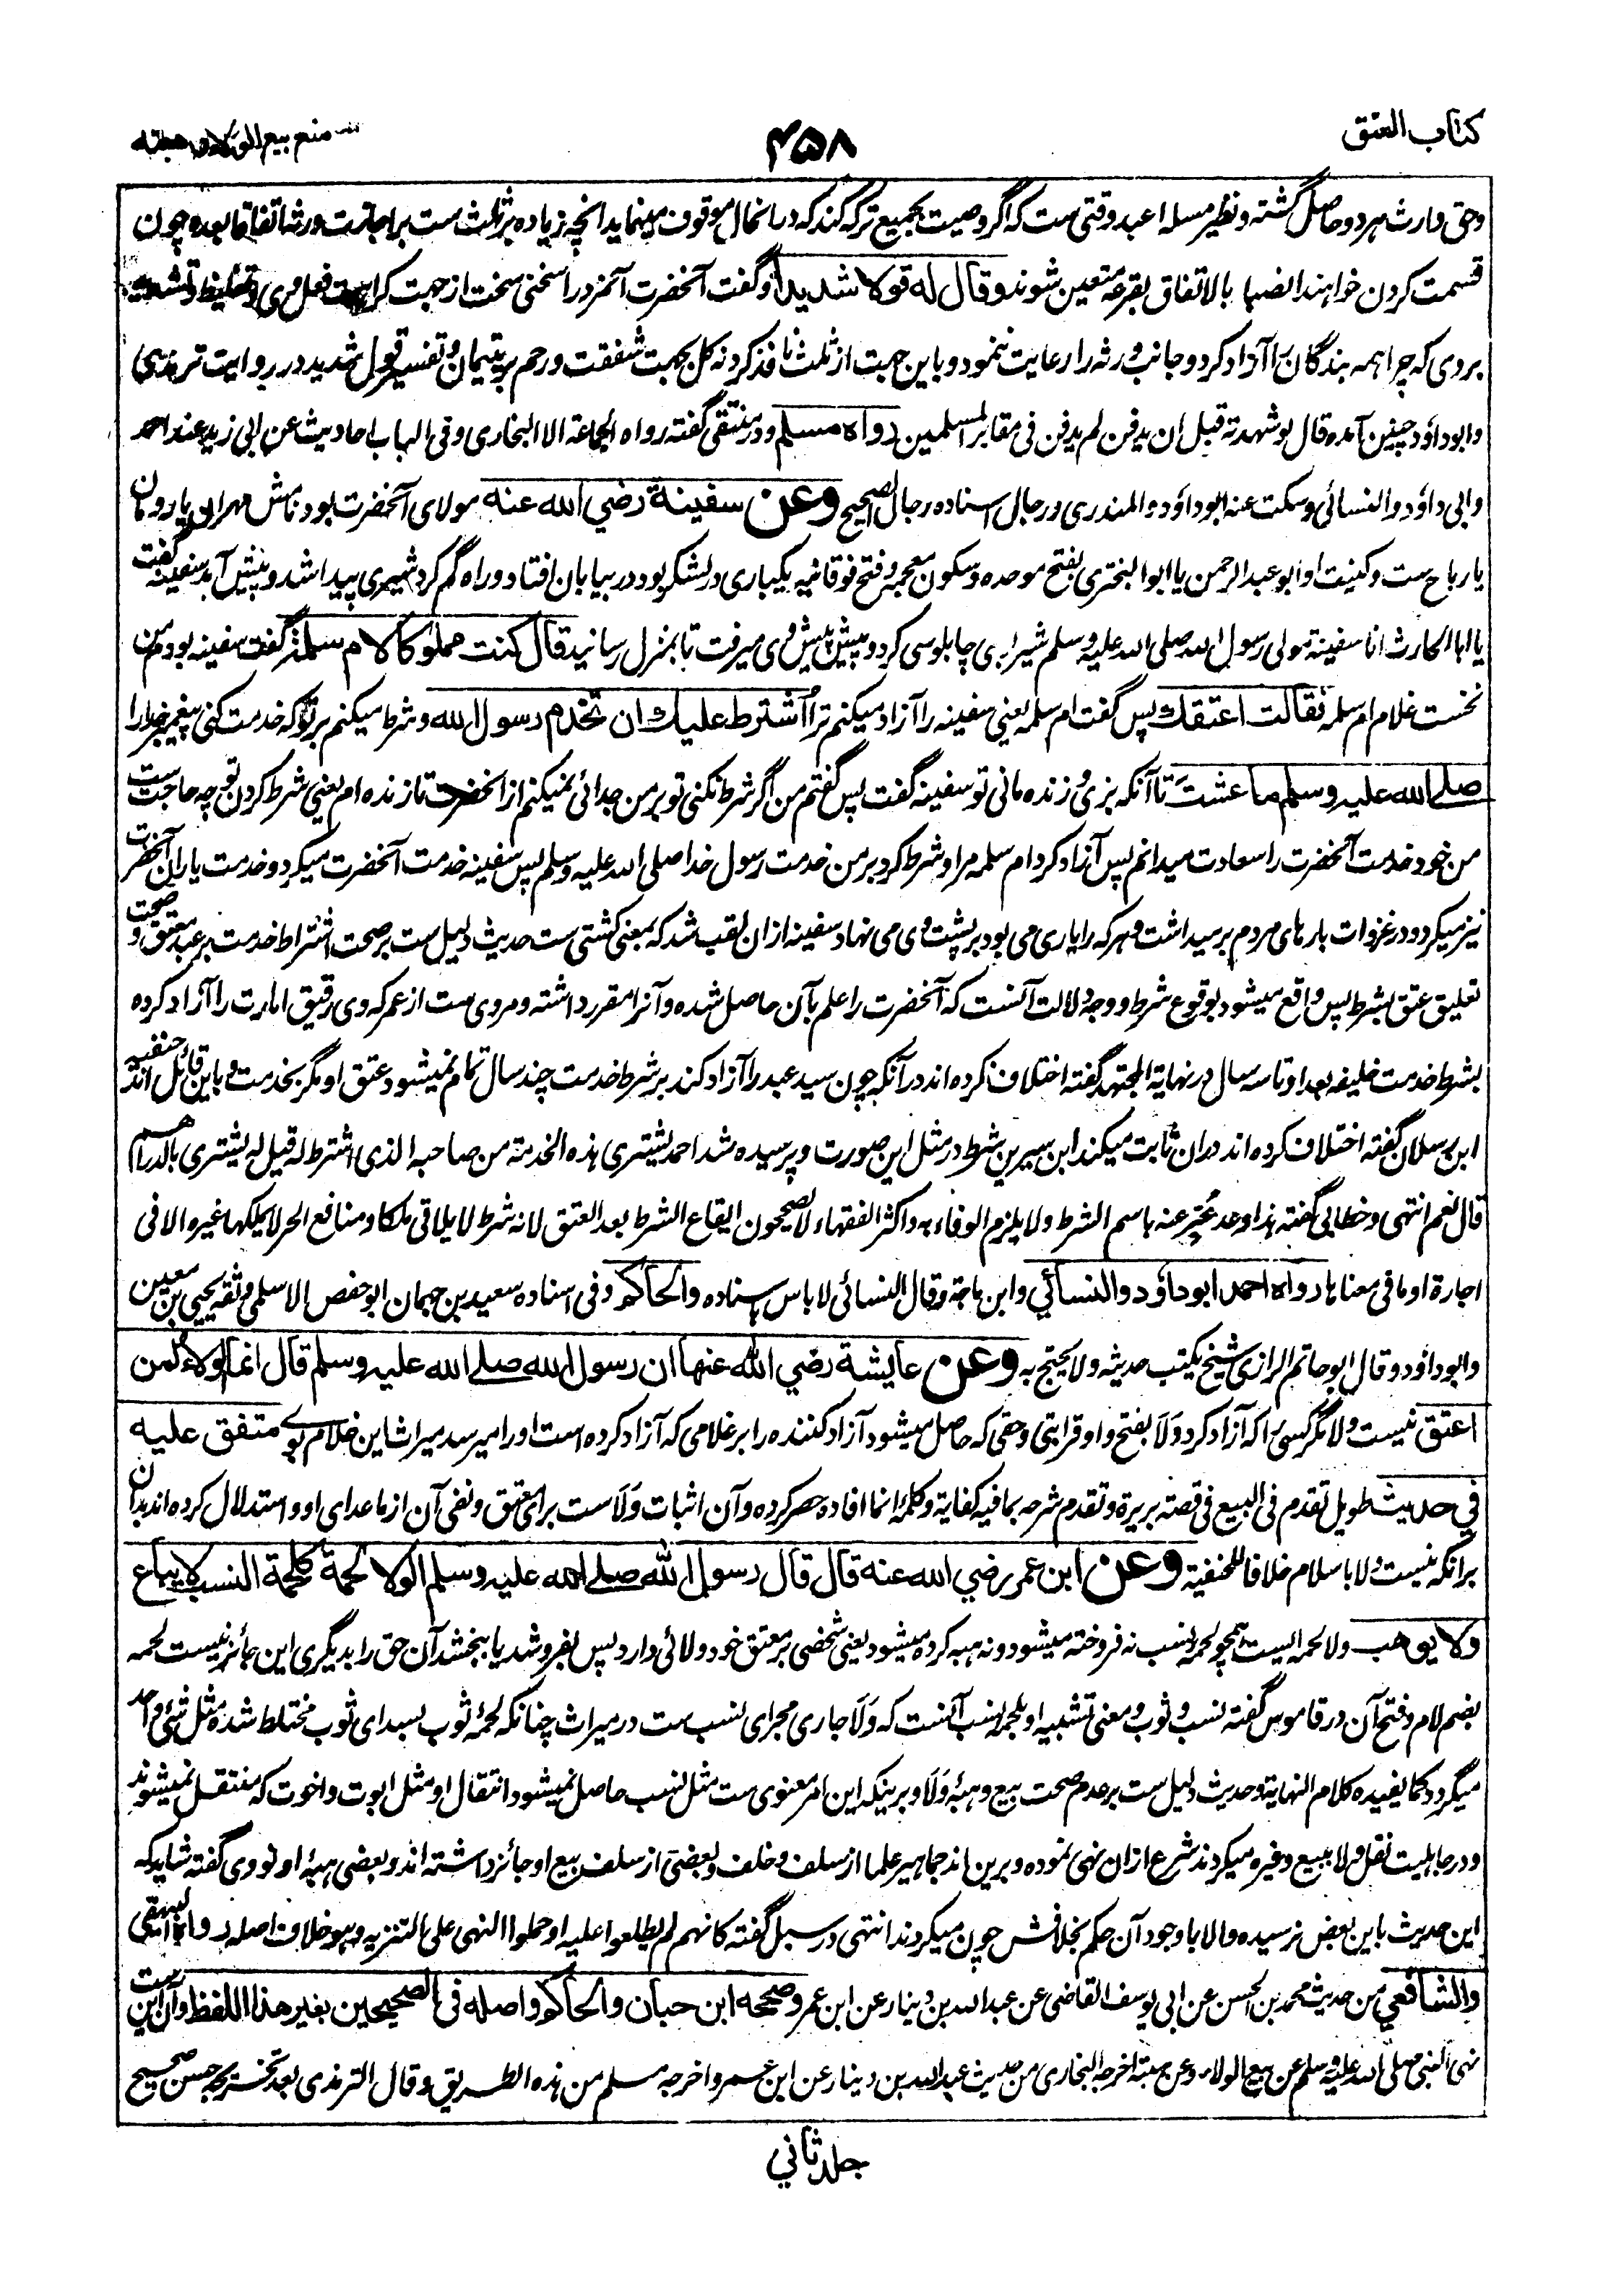 کتاب العتق
۴۵۸
منع بیع الولاء وهبته
وحق وارث هر دو حاصل گشته و نظیر مسئله اعبد وقتی ست که اگر وصیت بجمیع ترکه کند که در انحال موقوف مینماید انچه زیاده بر ثلث ست بر اجازت ورثه اتفاقا بعده چون
قسمت کردن خواهند انصبا بالاتفاق بقرعه متعین شوند وقال له قولا شدیدا و گفت آنحضرت آنمرد را سخنی سخت از جهت کراهت فعل وی و تغلیظ و تشدید
بر وی که چرا همه بندگان را آزاد کرد و جانب ورثه را رعایت ننمود و باین جهت از ثلث نافذ کرد نه کل بجهت شفقت و رحم بر یتیمان و تفسیر قول شدید در روایت ترمذی
وابو داؤد چنین آمده قال لو شهدته قبل ان یدفن لم یدفن فی مقابر المسلمین رواه مسلم و در منتقی گفته رواه الجماعة الا البخاری وفی الباب احادیث عن ابی زید عند احمد
وابی داؤد والنسائی وسکت عنه ابو داؤد والمنذری ورجال اسناده رجال الصحیح وعن سفینة رضی الله عنه مولای آنحضرت بود نامش مهران یا رومان
یا رباح ست و کنیت او ابو عبد الرحمن یا ابو البختری بفتح موحده و سکون معجمه و فتح فوقانیه یکباری در لشکر بود در بیابان افتاد و راه گم کرد شیری پیدا شد و پیش آمد سفینه گفت
یا ابا الحارث انا سفینة مولی رسول الله صلی الله علیه وسلم شیر او بی چابلوسی کرد و پیش پیش وی میرفت تا بمنزل رسانید قال کنت مملوکا لام سلمة گفت سفینه بودم من
نخست غلام ام سلمه فقالت اعتقك پس گفت ام سلمه یعنی سفینه را آزاد میکنم ترا واشترط علیك ان تخدم رسول الله و شرط میکنم بر تو که خدمت کنی پیغمبر خدا را
صلی الله علیه وسلم ما عشت تا آنکه بزی و زنده مانی تو سفینه گفت پس گفتم من اگر شرط نکنی تو بر من جدائی نمیکنم از آنحضرت تا زنده ام یعنی شرط کردن تو چه حاجت ست
من خود خدمت آنحضرت را سعادت میدانم پس آزاد کرد ام سلمه مرا و شرط کرد بر من خدمت رسول خدا صلی الله علیه وسلم پس سفینه خدمت آنحضرت میکرد و خدمت یاران آنحضرت
نیز میکرد و در غزوات بارهای مردم بر میداشت و هر که را باری می بود بر پشت وی می نهاد سفینه ازان لقب شد که بمعنی کشتی ست حدیث دلیل ست بر صحت اشتراط خدمت بر عبد معتق و صحت
تعلیق عتق بشرط پس واقع میشود بوقوع شرط و وجه دلالت آنست که آنحضرت را علم بآن حاصل شده و آنرا مقرر داشته و مروی ست از عمر که وی رقیق امارت را آزاد کرده
بشرط خدمت خلیفه بعد او تا سه سال در نهایة المجتهد گفته اختلاف نکرده اند در آنکه چون سید عبد را آزاد کند بر شرط خدمت چند سال تمام نمیشود عتق او مگر بخدمت و باین قائل اند حنفیه
ابن رسلان گفته اختلاف کرده اند دران ثابت میکند ابن سیرین شرط در مثل این صورت و پرسیده شد احمد یشتری هذه الخدمة من صاحبه الذی اشترط له قیل له یشتری بالدراهم
قال نعم انتهی و خطابی گفته هذا وعد عبر عنه باسم الشرط ولا یلزم الوفاء به واکثر الفقهاء لا یصححون ایقاع الشرط بعد العتق لانه شرط لا یلاقی ملکا ومنافع الحر لا یملکها غیره الا فی
اجارة او ما فی معناها رواه احمد ابو داؤد والنسائی وابن ماجة وقال النسائی لا باس باسناده والحاکم وفی اسناده سعید بن جمهان ابو حفص الاسلمی وثقه یحیی بن معین
وابو داؤد وقال ابو حاتم الرازی شیخ یکتب حدیثه ولا یحتج به وعن عایشة رضی الله عنها ان رسول الله صلی الله علیه وسلم قال انما الولاء لمن
اعتق نیست ولا مگر کسی را که آزاد کرد وَلا بفتح واو قرابتی و حقی که حاصل میشود آزاد کننده را بر غلامی که آزاد کرده است او را میرسد میراث این غلام بوے متفق علیه
فی حدیث طویل تقدم فی البیع فی قصة بریرة وتقدم شرحه بما فیه کفایة و کلمه انما افاده حصر کرده و آن اثبات ولا ست برای معتق و نفی آن از ما عدای او و استدلال کرده اند بدان
برانکه نیست ولا باسلام خلافا للحنفیة وعن ابن عمر رضی الله عنه قال قال رسول الله صلی الله علیه وسلم الولاء لحمة کلحمة النسب لا یباع
ولا یوهب ولا لحمه ایست همچو لحمه نسب نه فروخته میشود و نه هبه کرده میشود یعنی شخصی بر معتق خود ولائی دارد پس بفروشد یا ببخشد آن حق را بدیگری این جائز نیست لحمه
بضم لام و فتح آن در قاموس گفته نسب و ثوب و معنی تشبیه او بلحمه نسب آنست که ولا جاری مجرای نسب ست در میراث چنانکه لحمهٔ ثوب بسدای ثوب مختلط شده مثل شئ واحد
میگردد کما یفیده کلام النهایة و حدیث دلیل ست بر عدم صحت بیع و هبهٔ ولا و برینکه این امر معنوی ست مثل نسب حاصل نمیشود انتقال او مثل ابوت و اخوت که منتقل نمیشوند
و در جاهلیت نقل ولا ببیع و غیره میکردند شرع ازان نهی نموده و برین اند جماهیر علما از سلف و خلف و بعضی از سلف بیع او جائز داشته اند و بعضی هبهٔ او نووی گفته شاید که
این حدیث باین بعض نرسیده والا با وجود آن حکم بخلافش چون میکردند انتهی در سبل گفته کانهم لم یطلعوا علیه او حملوا النهی علی التنزیه وهو خلاف اصله رواه البیهقی
والشافعی من حدیث محمد بن الحسن عن ابی یوسف القاضی عن عبد الله بن دینار عن ابن عمر وصححه ابن حبان والحاکم واصله فی الصحیحین بغیر هذا اللفظ و آن این ست
نهی النبی صلی الله علیه وسلم عن بیع الولاء وعن هبته اخرجه البخاری من حدیث عبد الله بن دینار عن ابن عمر واخرجه مسلم من هذه الطریق وقال الترمذی بعد تخریجه حسن صحیح
جلد ثانی